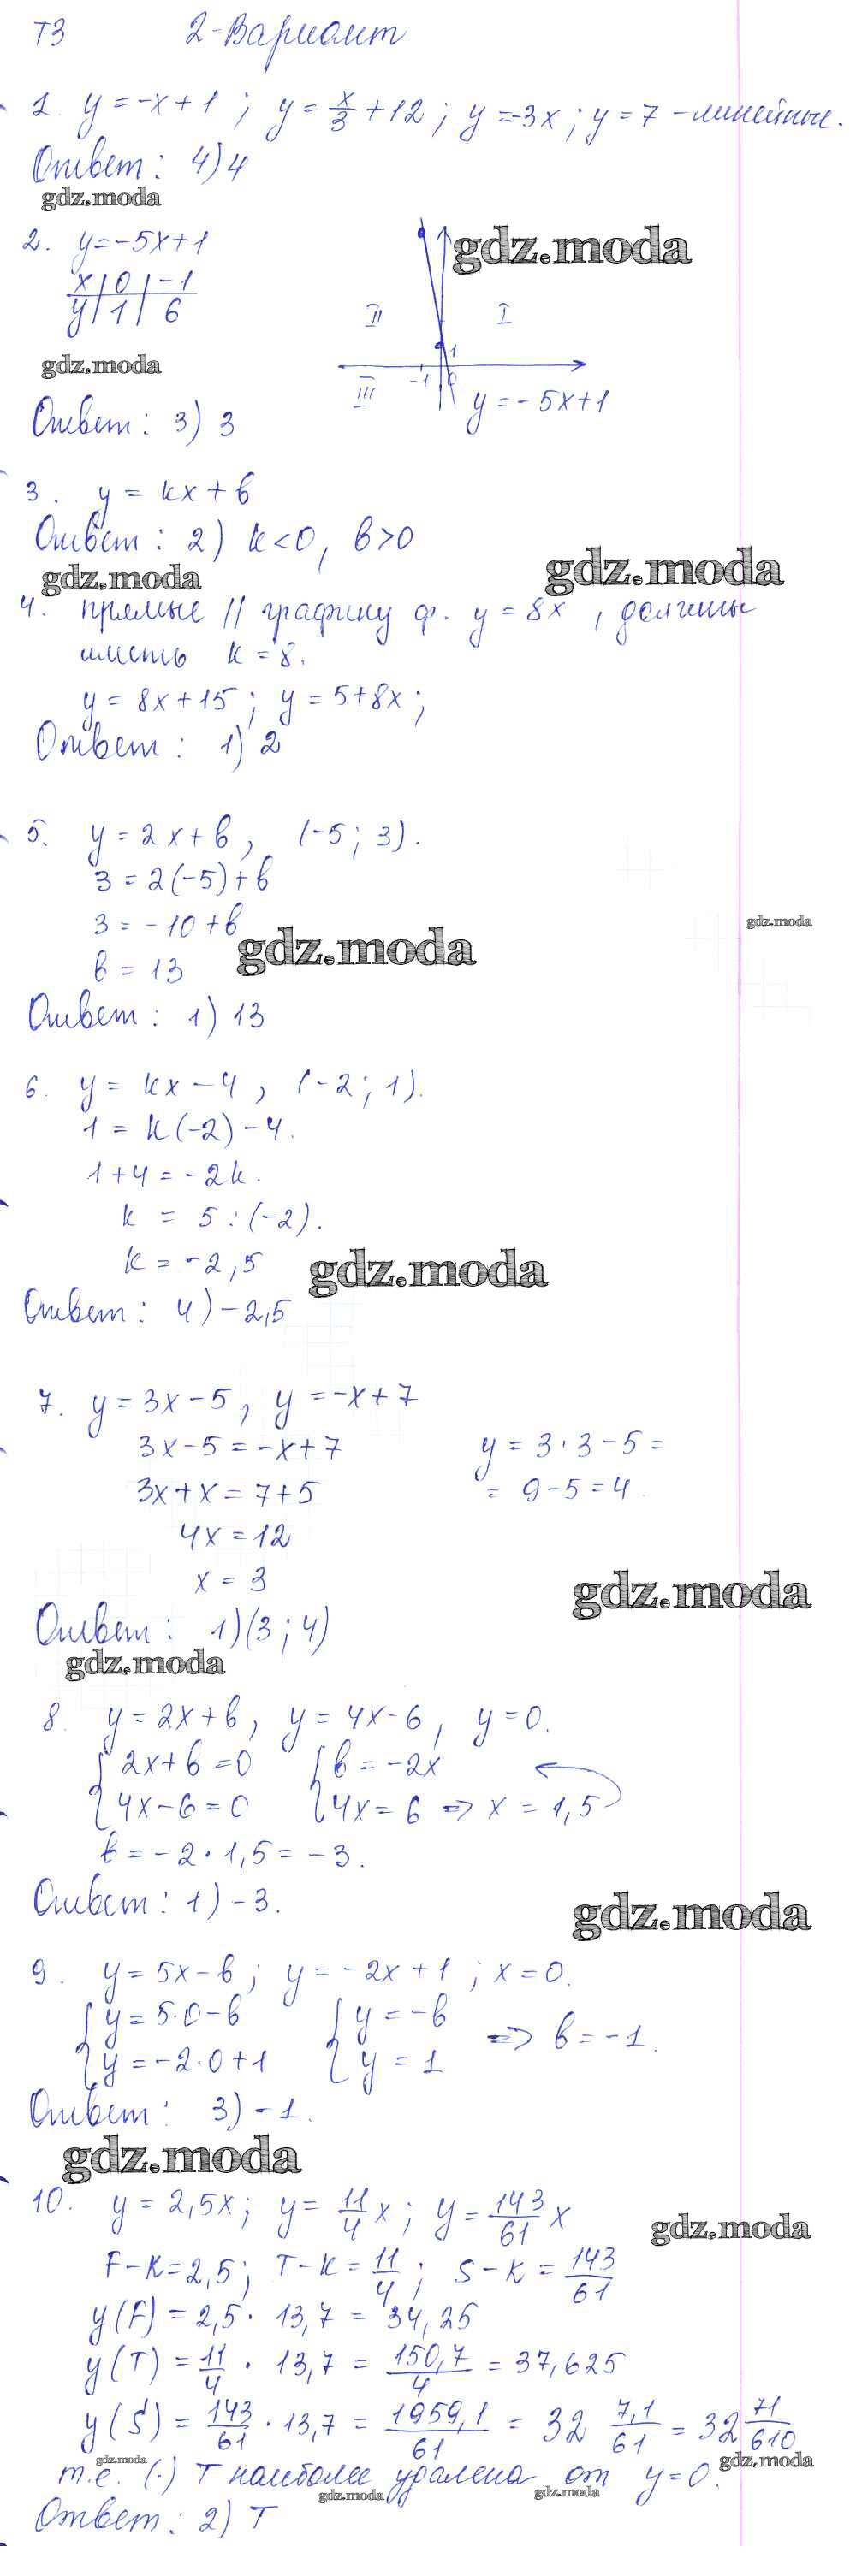 Т3 2-Вариант
1. y = -x + 1 ; y = x/3 + 12 ; y = -3x ; y = 7 - линейные.
Ответ: 4) 4
gdz.moda
2. y = -5x + 1
gdz.moda
x | 0 | -1
y | 1 | 6
II I
gdz.moda
1
-1 0
III
y = -5x + 1
Ответ: 3) 3
3. y = kx + b
Ответ: 2) k < 0, b > 0
gdz.moda
gdz.moda
4. прямые // графику ф. y = 8x , должны
иметь k = 8.
y = 8x + 15 ; y = 5 + 8x ;
Ответ: 1) 2
5. y = 2x + b , (-5 ; 3).
3 = 2(-5) + b
3 = -10 + b
gdz.moda
gdz.moda
b = 13
Ответ: 1) 13
6. y = kx - 4 , (-2 ; 1).
1 = k(-2) - 4.
1 + 4 = -2k.
k = 5 : (-2).
k = -2,5
gdz.moda
Ответ: 4) -2,5
7. y = 3x - 5 , y = -x + 7
3x - 5 = -x + 7 y = 3 · 3 - 5 =
3x + x = 7 + 5 = 9 - 5 = 4.
4x = 12
x = 3
gdz.moda
Ответ: 1) (3 ; 4)
gdz.moda
8. y = 2x + b , y = 4x - 6 , y = 0.
{ 2x + b = 0 { b = -2x
{ 4x - 6 = 0 { 4x = 6 => x = 1,5
b = -2 · 1,5 = -3.
Ответ: 1) -3.
gdz.moda
9. y = 5x - b ; y = -2x + 1 ; x = 0.
{ y = 5·0 - b { y = -b => b = -1.
{ y = -2·0 + 1 { y = 1
Ответ: 3) -1.
gdz.moda
10. y = 2,5x ; y = 11/4 x ; y = 143/61 x
gdz.moda
F - K = 2,5 ; T - K = 11/4 ; S - K = 143/61
y(F) = 2,5 · 13,7 = 34,25
y(T) = 11/4 · 13,7 = 150,7/4 = 37,625
y(S) = 143/61 · 13,7 = 1959,1/61 = 32 7,1/61 = 32 71/610
gdz.moda
gdz.moda
т.е. (·) T наиболее удалена от y = 0.
gdz.moda
gdz.moda
Ответ: 2) T